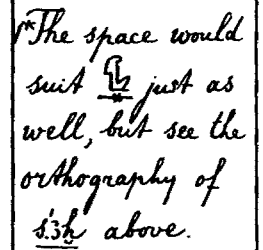 The space would
suit just as
well, but see the
orthography of
above.